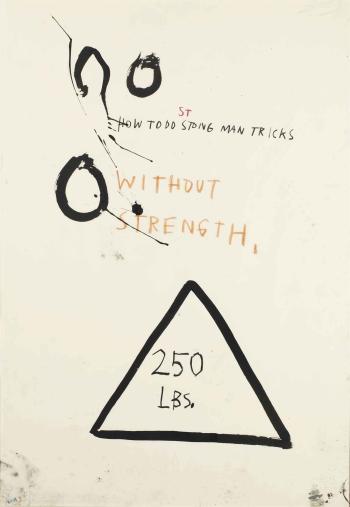 ST
HOW TO DO STONG MAN TRICKS
WITHOUT
STRENGTH.
250
LBS.